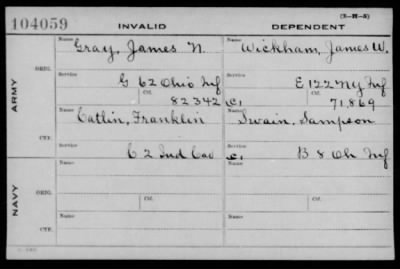 (3-H-5)
104059 INVALID DEPENDENT
Name Name
Gray, James N. Wickham, James W.
ORIG. Service Service
G 62 Ohio Inf E 122 NY Inf
Ctf. Ctf.
82342 C. 71,869
ARMY
Name Name
Catlin, Franklin Swain, Sampson
CTF. Service Service
C 2 Ind Cav C. B 8 Oh Inf
Name Name
ORIG. Ctf. Ctf.
NAVY
Name Name
CTF.